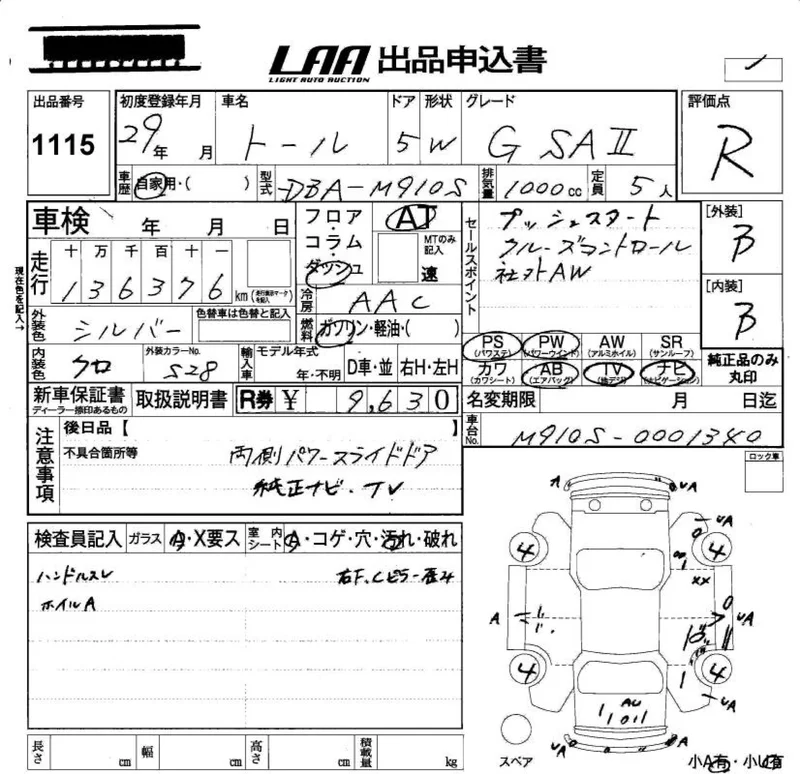 LAA 出品申込書
LIGHT AUTO AUCTION
出品番号 初度登録年月 車名 ドア 形状 グレード 評価点
1115 29年 月 トール 5 W G SAⅡ R
車歴 自家用・( ) 型式 DBA-M910S 排気量 1000cc 定員 5人
車検 年 月 日
フロア・コラム・ダッシュ AT MTのみ記入 速
セールスポイント
プッシュスタート
クルーズコントロール
社外AW
[外装] B
[内装] B
現在色を記入→
走行 十 万 千 百 十 一
136376 km (走行表示マークを記入)
冷房 AAC
外装色 シルバー 色替車は色替と記入
燃料 ガソリン・軽油・( )
PS (パワステ) PW (パワーウインド) AW (アルミホイル) SR (サンルーフ)
カワ (カワシート) AB (エアバッグ) TV (地デジ) ナビ (ナビゲーション)
純正品のみ丸印
内装色 クロ 外装カラーNo. S28 輸入車 モデル年式 年・不明 D車・並 右H・左H
新車保証書 ディーラー捺印あるもの 取扱説明書 R券 ¥ 9,630
名変期限 月 日迄
車台No. M910S-0001340
注意事項 後日品【 】
不具合箇所等
両側パワースライドドア
純正ナビ・TV
ロック車
検査員記入 ガラス A・X要ス 室内シート A・コゲ・穴・汚れ・破れ
ハンドルスレ 右F、Cピラー歪み
ホイルA
A UA
UA
4 4
XX
A UA
10
4 4
UA
AU
UA A
スペア
小A有・小U有
長さ cm 幅 cm 高さ cm 積載量 kg